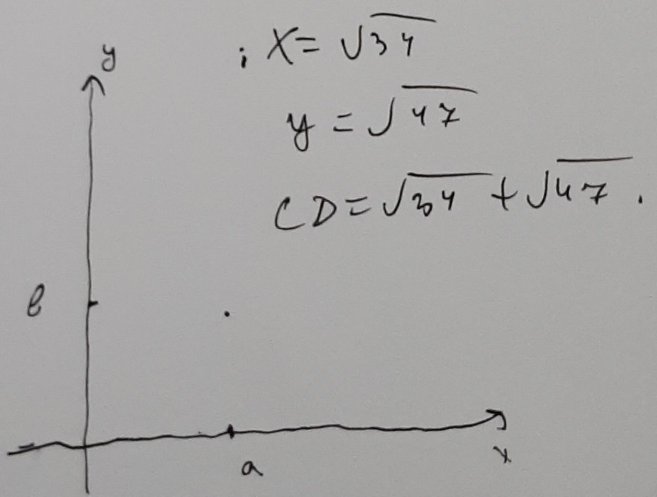 y
; X = √34
y = √47
CD = √34 + √47.
b
a
x